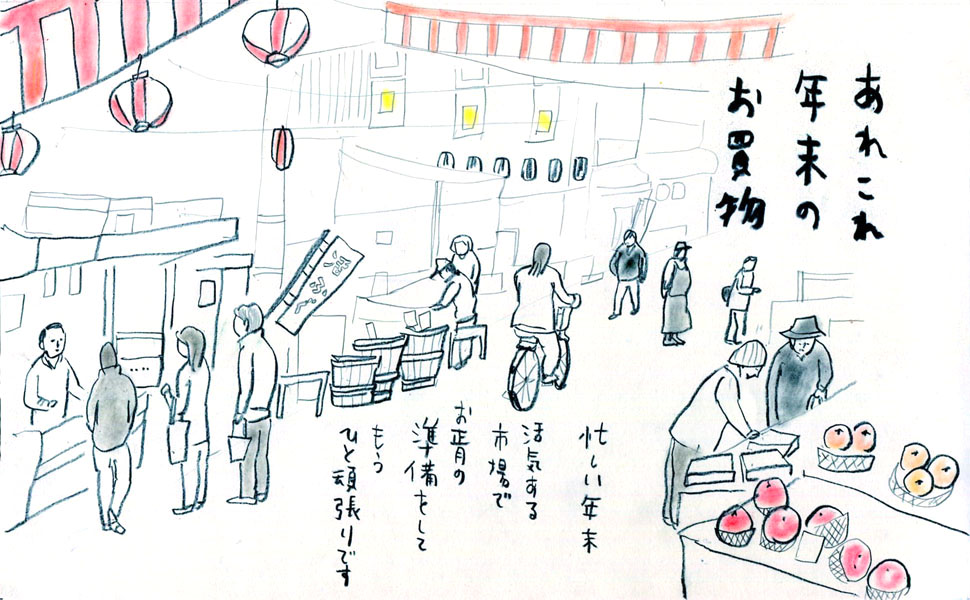 あれこれ
年末の
お買物
忙しい年末
活気ある
市場で
お正月の
準備をして
もう
ひと頑張りです